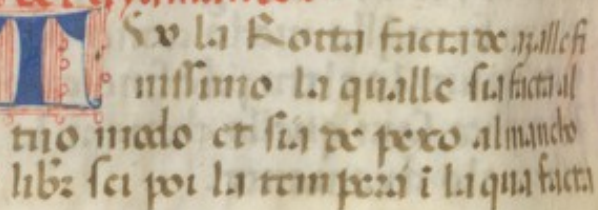 Tuo la Rotta facta de azalle fi
nissimo la qualle sia facta al
tuo modo et sia de pexo almancho
libr sei poi la tempera i la qua facta